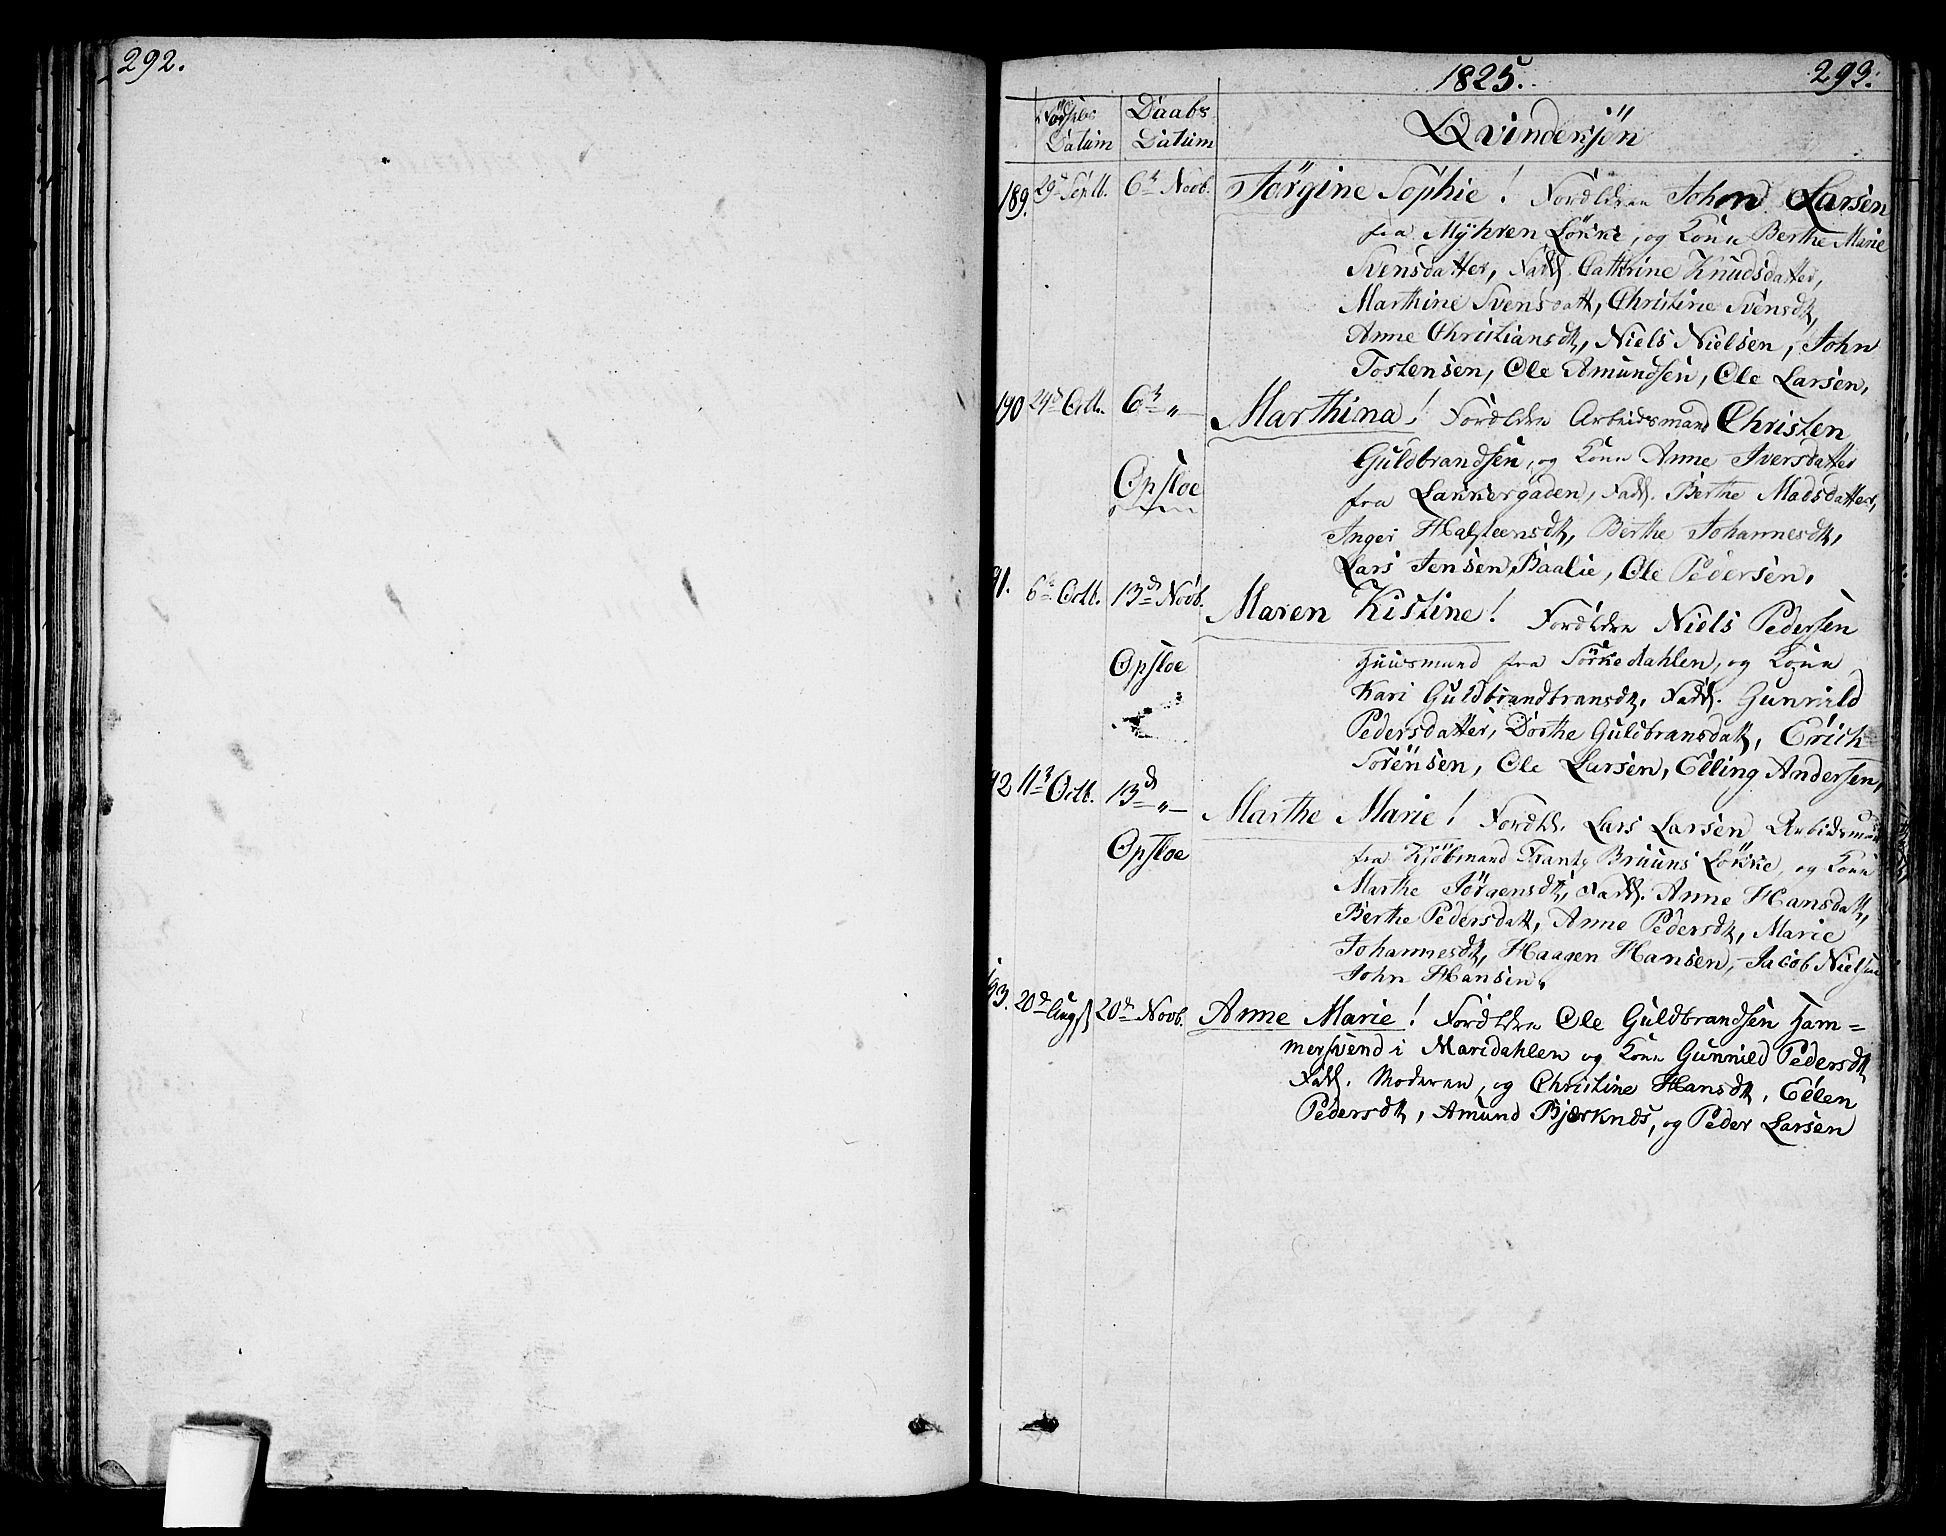 292.
1825. 293.
Fødsels Datum
Daabs Datum
Qvindekjön
189. 29d Septb. 6t Novb. Jörgine Sophie! Forældren Johan Larsen
fra Myhren Lökke, og Kone Berthe Marie
Svensdatter, Fadd. Cathrine Knudsdatter,
Marthine Svensdatt, Christine Svensdt,
Anne Christiansdt, Niels Nielsen, John
Tostensen, Ole Amundsen, Ole Larsen,
190 29d Octb. 6t „ Marthina! Forældre Arbeidsmand Christen
Guldbrandsen, og Kone Anne Iversdatter
Opsloe
fra Lakkergaden, Fadd. Berthe Madsdatter,
Inger Halsteensdt, Berthe Johannesdt,
Lars Jensen Baalie, Ole Pedersen,
91. 6t Octb. 13d Novb. Maren Kistine! Forældre Niels Pedersen
Opsloe
Huusmand fra Sörkedahlen, og Kone
Kari Guldbrandbransdt, Fadd. Gunnild
Pedersdatter, Dorthe Guldbransdatt, Erich
Sörensen, Ole Larsen, Elling Andersen,
92 11t Octb. 13d „ Marthe Marie! Foreld. Lars Larsen Arbidsmand
Opsloe
fra Kjöbmand Frantz Bruuns Lökke, og Kone
Marthe Jörgensdt, Fadd. Anne Hansdatt,
Berthe Pedersdatt, Anne Pedersdt, Marie
Johannesdt, Haagen Hansen, Jacob Nielsen
John Hansen.
193. 20d Augst 20d Novb. Anne Marie! Forældre Ole Guldbrandsen Ham=
mersvend i Maridahlen og Kone Gunnild Pedersdt
Fadd. Moderen, og Christine Hansdt, Ellen
Pedersdt, Amund Bjærknes, og Peder Larsen